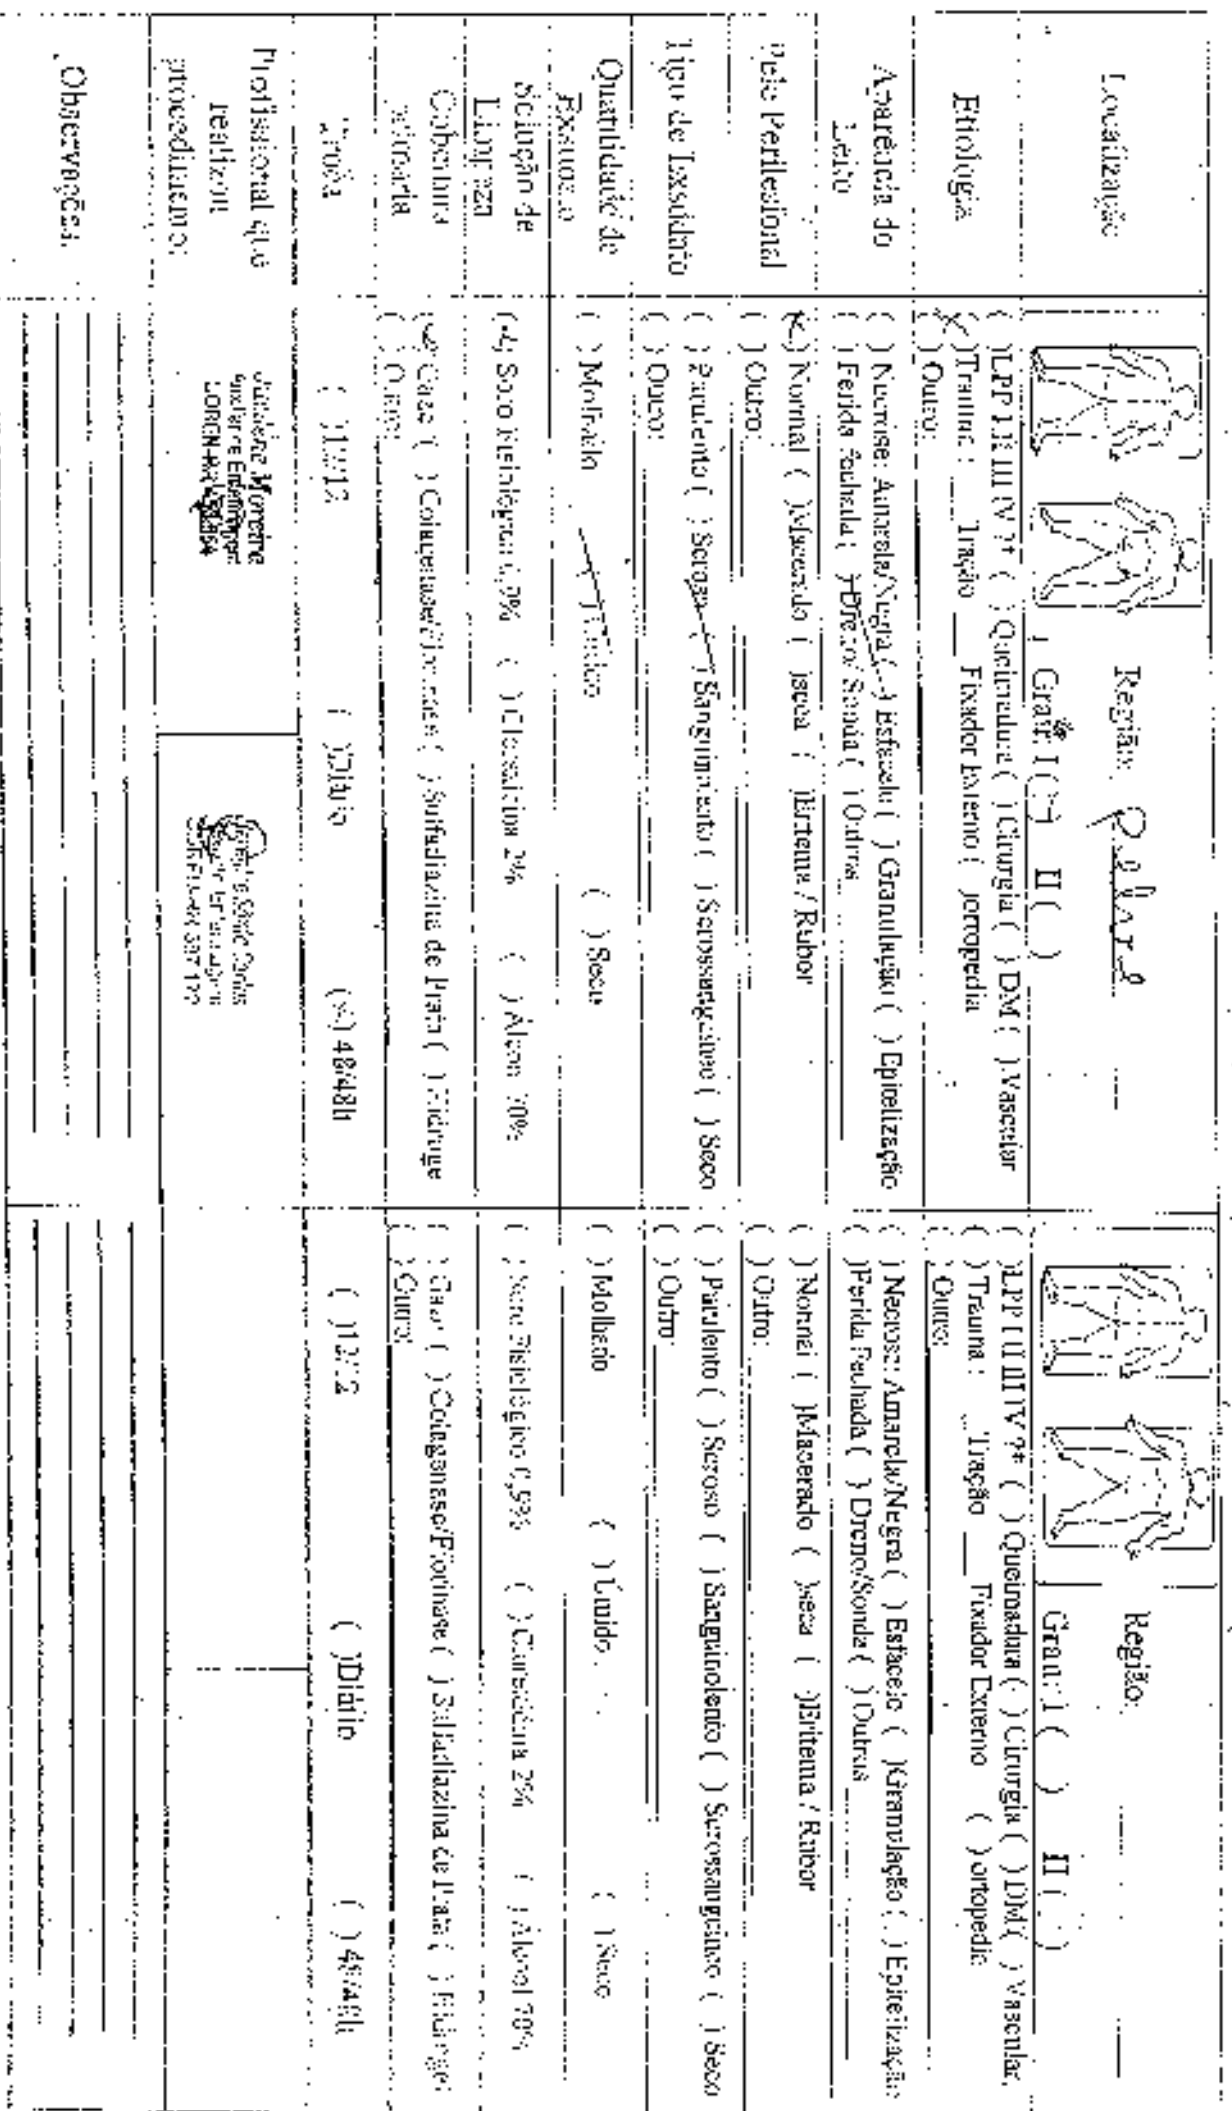 Localização:
Região:
Grau: I ( ) II ( )
Região:
Grau: I ( ) II ( )
Etiologia
( )LPP I II III IV ?* ( ) Queimadura ( ) Cirurgia ( ) DM ( ) Vascular
(X)Trauma : ___ Tração ___ Fixador Externo ( )ortopedia
( ) Outro:
( )LPP I II III IV ?* ( ) Queimadura ( ) Cirurgia ( ) DM ( ) Vascular
( ) Trauma : ___ Tração ___ Fixador Externo ( ) ortopedia
( ) Outro:
Aparência do
Leito
( ) Necrose: Amarela/Negra ( ) Esfacelo ( ) Granulação ( ) Epitelização
( ) Ferida fechada ( ) Dreno/Sonda ( ) Outros
( ) Necrose: Amarela/Negra ( ) Esfacelo ( )Granulação ( ) Epitelização
( )Ferida Fechada ( ) Dreno/Sonda ( ) Outros
Pele Perilesional
(X) Normal ( )Macerado ( )seca ( )Eritema / Rubor
( ) Outro:
( ) Normal ( )Macerado ( )seca ( )Eritema / Rubor
( ) Outro:
Tipo de Exsudato
( ) Purulento ( ) Seroso ( ) Sanguinolento ( ) Serossanguíneo ( ) Seco
( ) Outro:
( ) Purulento ( ) Seroso ( ) Sanguinolento ( ) Serossanguíneo ( ) Seco
( ) Outro:
Quantidade de
Exsudato
( ) Molhado ( ) Úmido ( ) Seco
( ) Molhado ( ) Úmido ( ) Seco
Solução de
Limpeza
(x) Soro Fisiológico 0,9% ( ) Clorexidina 2% ( ) Álcool 70%
( ) Soro Fisiológico 0,9% ( ) Clorexidina 2% ( ) Álcool 70%
Cobertura
primária
(x) Gaze ( ) Colagenase/Fibrinase ( ) Sulfadiazina de Prata ( ) Hidrogel
( ) Outro:
( ) Gaze ( ) Colagenase/Fibrinase ( ) Sulfadiazina de Prata ( ) Hidrogel
( ) Outro:
Troca
( )12/12 ( )Diário (x) 48/48h
( )12/12 ( )Diário ( ) 48/48h
Profissional que
realizou
procedimento:
Observações: